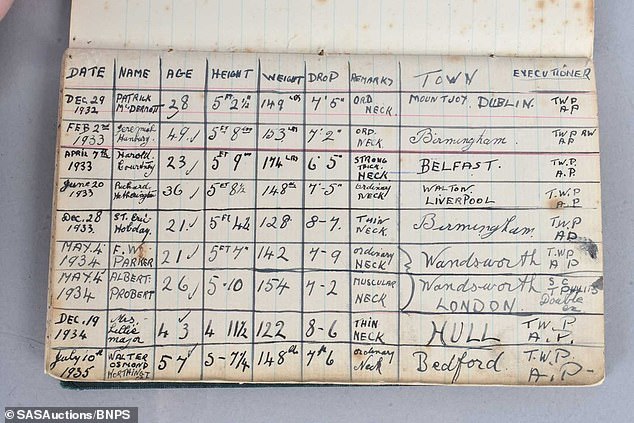 DATE NAME AGE HEIGHT WEIGHT DROP REMARKS TOWN EXECUTIONER
DEC. 29 1932 PATRICK McDERMOTT 28 5 FT 2½ 149 LBS 7' 5" ORD NECK. MOUNTJOY, DUBLIN. T W P AP
FEB 2nd 1933 Jeremiah Hanbury 49 5 FT 8 153 LBS 7' 2" ORD. NECK Birmingham. TWP RW AP
APRIL 7th 1933 Harold Courtney 23 5 FT 9" 174 LBS 6' 5" STRONG THICK. NECK BELFAST. T.W.P. A.P.
June 20 1933 Richard Hetherington 36 5 FT 8½ 148 LBS 7'-5" ordinary NECK WALTON. LIVERPOOL T.W.P A.P.
Dec. 28 1933 ST. Eric Hobday. 21 5 Ft 4¾ 128 8-7. THIN NECK Birmingham T.W.P AP
MAY. 4. 1934 F. W. PARKER 21 5 FT 7" 142 7-9 ordinary NECK Wandsworth T.W.P A P
MAY. 4. 1934 ALBERT. PROBERT 26 5-10 154 7-2 MUSCULAR NECK Wandsworth LONDON. S C T PHILLIPS Double
DEC. 19 1934 Mrs. Lillie major 43 4 11½ 122 8-6 THIN NECK HULL T.W.P A.P.
July 10th 1935 WALTER OSMOND WORTHINGT 57 5-7¼ 148 lb 7 ft 6 ordinary Neck Bedford. T.W.P. A.P-
©SASAuctions/BNPS